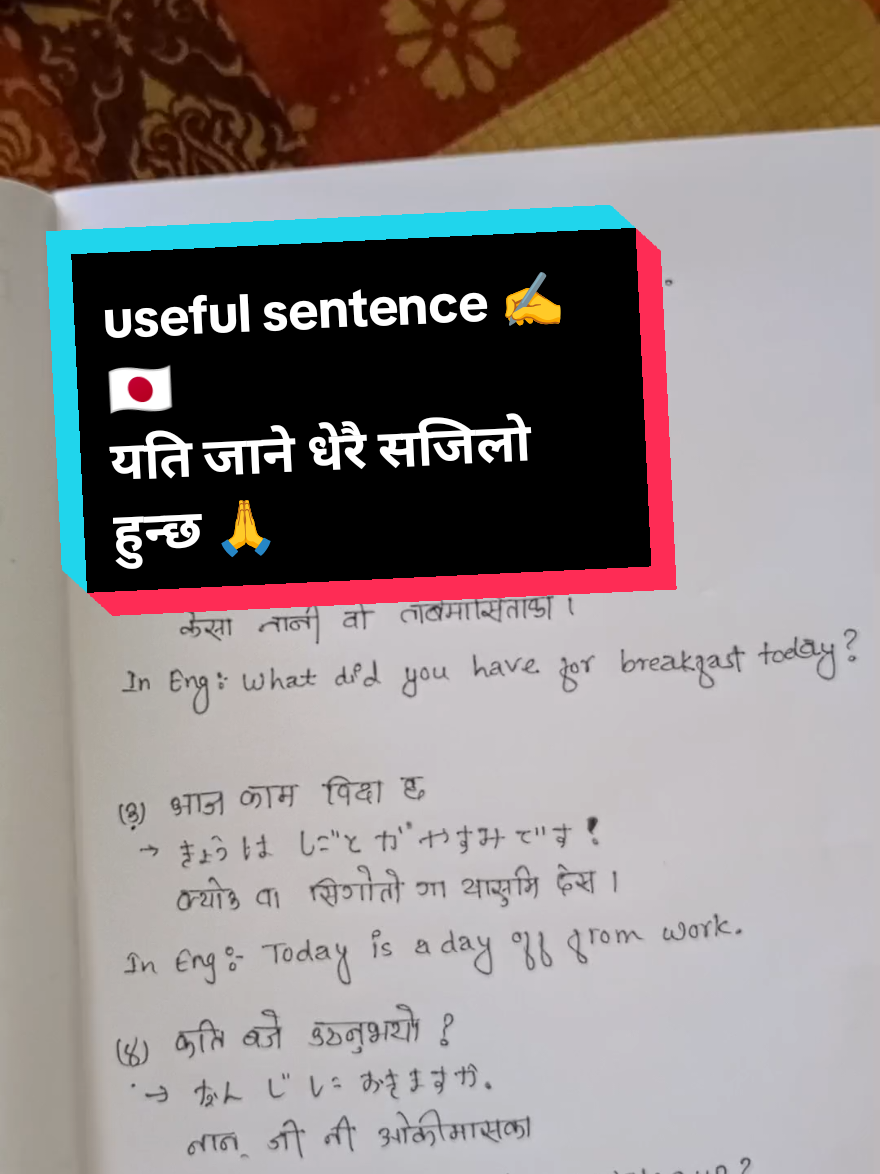 useful sentence ✍️
🇯🇵
यति जाने धेरै सजिलो
हुन्छ 🙏
केसा नानी वो ताबेमासिताका ।
In Eng: What did you have for breakfast today?
(३) आज काम विदा छ
→ きょうは しごとが やすみです!
क्योउ वा सिगोतो गा यासुमि देस ।
In Eng:- Today is a day off from work.
(४) कति बजे उठ्नुभयो ?
→ なんじに おきますか.
नान् जी नी ओकीमासका